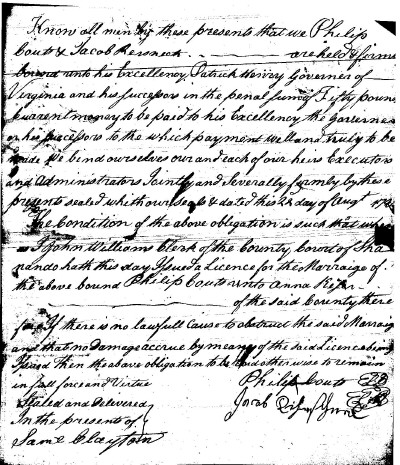 Know all men by these presents that we Philip
Couts & Jacob Rersneck are held & firme
bound unto his Excellency Patrick Henry Governer of
Virginia and his successors in the penal sum of Fifty pounds
Currentmoney to be paid to his Excellency the Governer
or his successors to the which payment well and truly to be
made we bend ourselves our and each of our heirs Executors
and administrators Jointly and severally formly by these
presents sealed whith our seals & dated this day of Augt
The Condition of the above obligation is such that
I John Williams Clerk of the County Court of Sha
nandohath this day Issued a Licence for the Marraige of
the above bound Philip Couts unto Anna
of the said County there
fore If there is no lawfull Cause to obstruct the said Marraig
and that no damage accrue by means of the said Licence being
Issued then the above obligation to be void other wise to remain
in full force and Virtue Philip Couts
Sealed and delivered Jacob
In the presents of
Saml Clayton